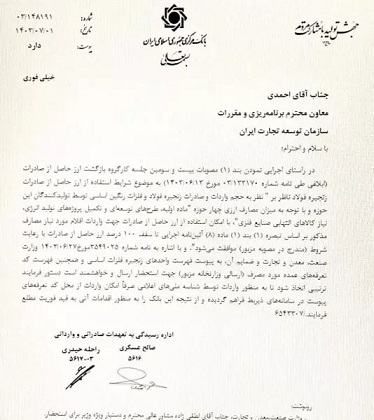 شماره: ۰۳/۱۴۸۱۹۱
تاریخ: ۱۴۰۳/۰۷/۰۱
پیوست: دارد
بانک مرکزی جمهوری اسلامی ایران
بسمه تعالی
جهش تولید با مشارکت مردم
خیلی فوری
جناب آقای احمدی
معاون محترم برنامه‌ریزی و مقررات
سازمان توسعه تجارت ایران
با سلام و احترام؛
در راستای اجرایی نمودن بند (۱) مصوبات بیست و سومین جلسه کارگروه بازگشت ارز حاصل از صادرات
(ابلاغی طی نامه شماره ۰۳/۱۲۳۱۷۰ مورخ ۱۴۰۳/۰۶/۱۳) به موضوع شرایط استفاده از ارز حاصل از صادرات
زنجیره فولاد ناظر بر " نظر به حجم واردات و صادرات زنجیره فولاد و فلزات رنگین اساسی توسط تولیدکنندگان این
حوزه و با توجه به میزان مصارف ارزی چهار حوزه "ماده اولیه، طرح‌های توسعه‌ای و تکمیل پروژه‌های تولید انرژی،
نیاز کالاهای انتهایی صنایع فلزی"، با امکان استفاده از ارز حاصل از صادرات جهت واردات اقلام مورد نیاز مصارف
مذکور بر اساس تبصره (۱) بند (۱) ماده (۸) آئین‌نامه اجرایی تا سقف ۱۰۰ درصد ارز حاصل از صادرات با رعایت
شروط (مندرج در مصوبه مزبور) موافقت می‌شود"، و با اشاره به نامه شماره ۳۵۴۹۰۲۵ مورخ ۱۴۰۳/۰۶/۲۷ وزارت
صنعت، معدن و تجارت و ضمایم آن، به پیوست فهرست واحدهای زنجیره فلزات اساسی و همچنین فهرست کد
تعرفه‌های عمده مورد مصرف (ارسالی وزارتخانه مزبور) جهت استحضار ارسال و خواهشمند است دستور فرمایند
ترتیبی اتخاذ شود تا به منظور واردات توسط شناسه ملی‌های اعلامی صرفاً امکان واردات از محل کد تعرفه‌های
پیوست در سامانه‌های ذیربط فراهم گردیده و از نتیجه این بانک را به منظور اقدامات آتی به قید فوریت مطلع
فرمایند.
اداره رسیدگی به تعهدات صادراتی و وارداتی
صالح عسگری
راحله حیدری
۵۶۱۶
۵۶۱۷-۰۳
رونوشت: